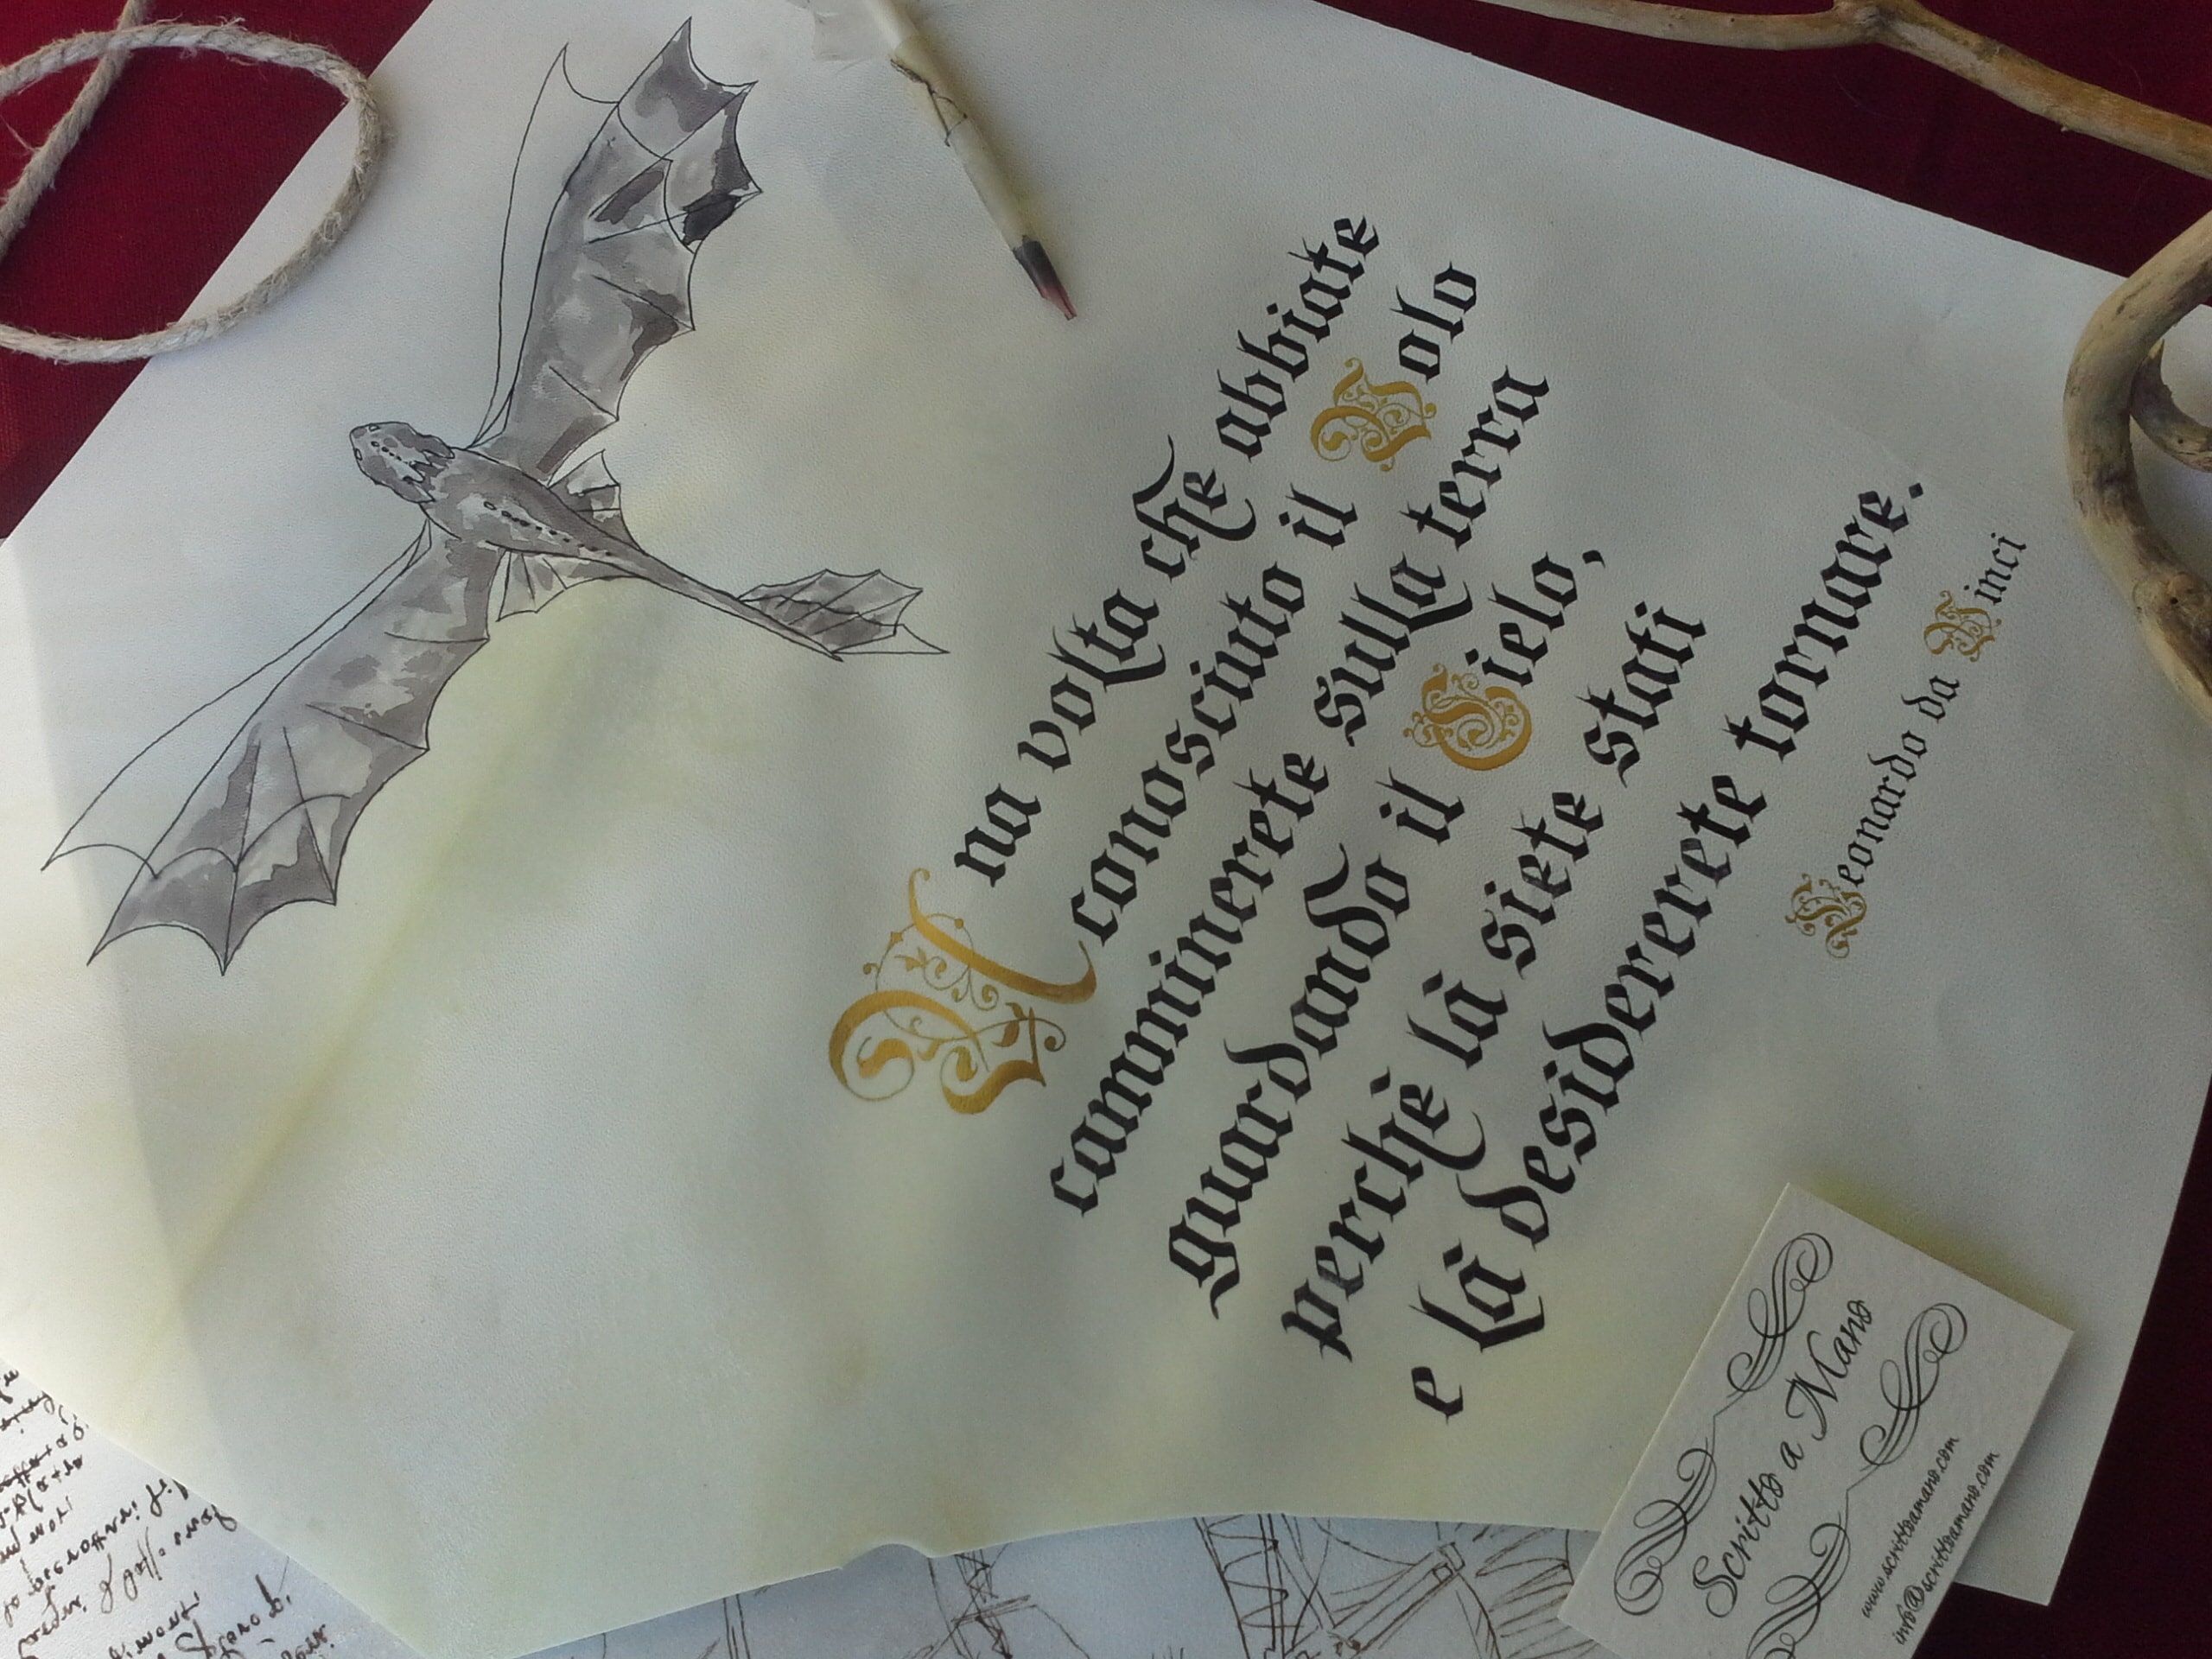 Una volta che abbiate
conosciuto il Volo
camminerete sulla terra
guardando il Cielo,
perchè là siete stati
e là desidererete tornare.
Leonardo da Vinci
Scritto a Mano
www.scrittoamano.com
info@scrittoamano.com